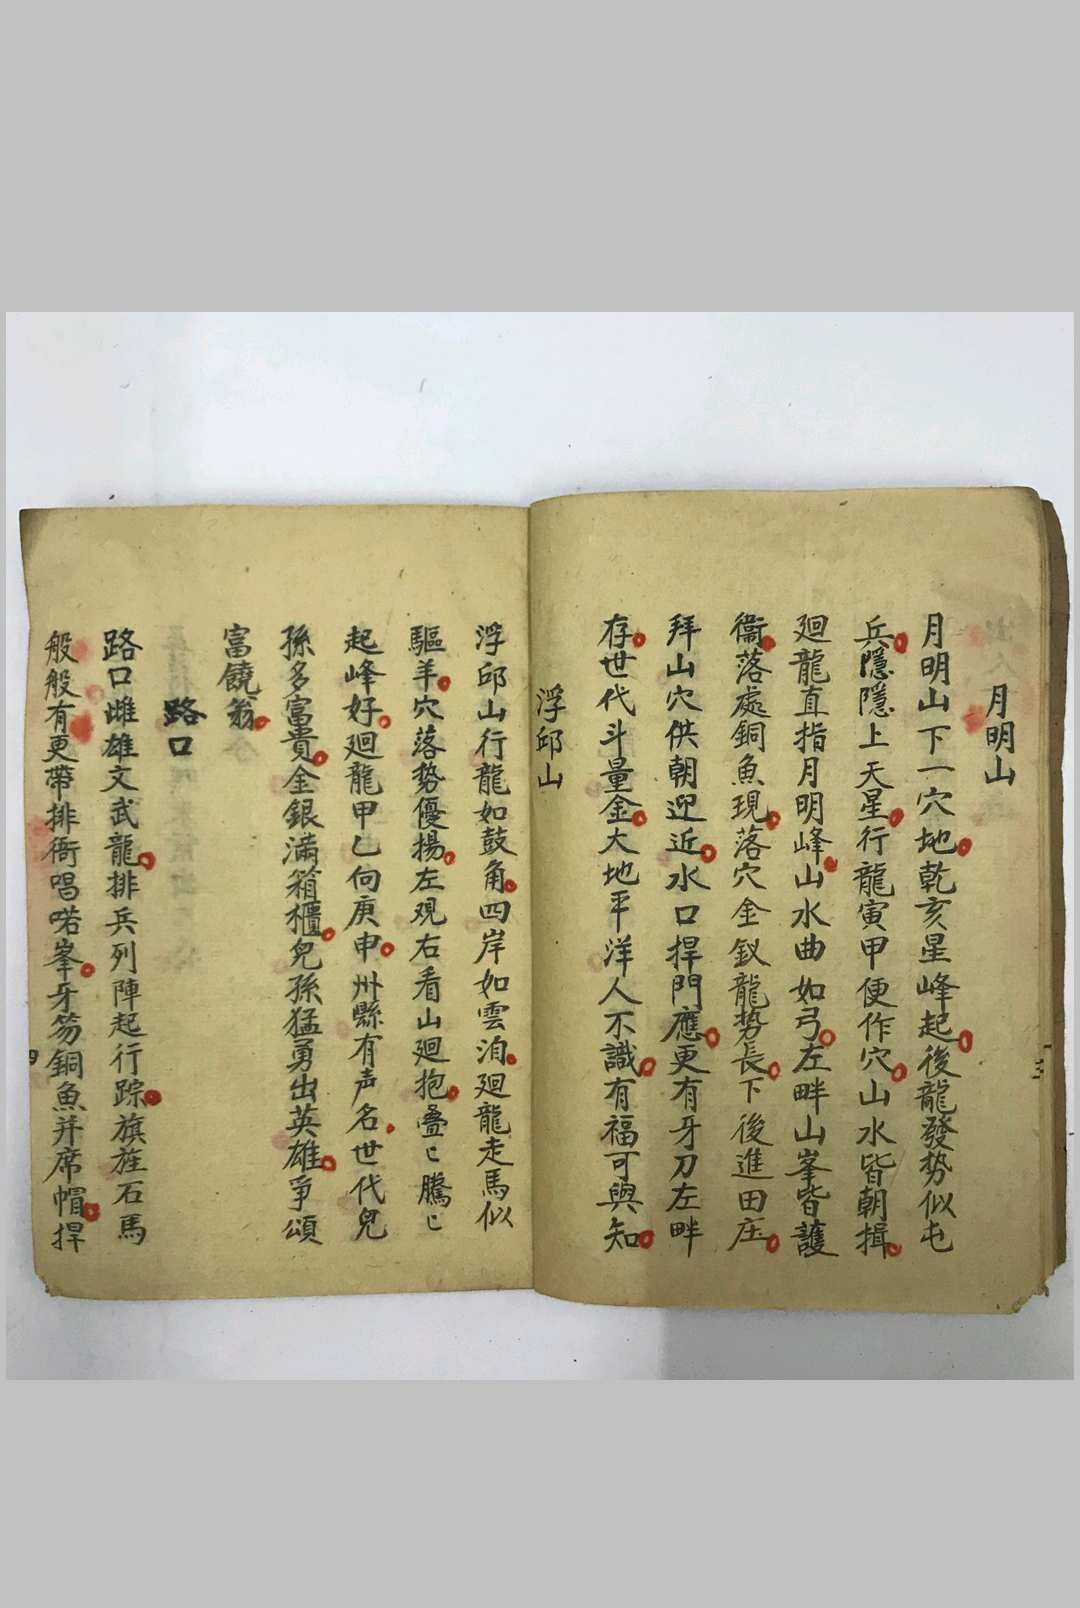 月明山
月明山下一穴地乾亥星峰起後龍發势似屯
兵隱隱上天星行龍寅甲便作穴山水皆朝揖
廻龍直指月明峰山水曲如弓左畔山峯皆護
衞落處銅魚現落穴金釵龍势長下後進田庄
拜山穴供朝迎近水口捍門應更有牙刀左畔
存世代斗量金大地平洋人不識有福可與知
浮邱山
浮邱山行龍如鼓角四岸如雲洎廻龍走馬似
驅羊穴落势優揚左观右看山廻抱叠〻騰〻
起峰好廻龍甲乙向庚申州縣有声名世代兒
孫多富貴金銀滿箱櫃兒孫猛勇出英雄爭頌
富饒翁
路口
路口雌雄文武龍排兵列陣起行踪旗旌石馬
般般有更帶排衙唱喏峯牙笏銅魚并席帽捍